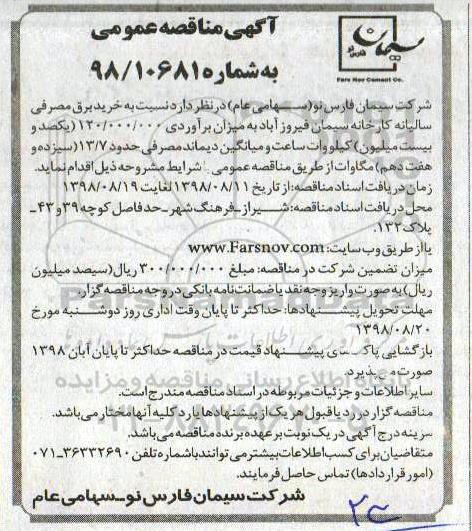 آگهی مناقصه عمومی
به شماره ۹۸/۱۰۶۸۱
سیمان فارس نو
Fars Nov Cement Co.
شرکت سیمان فارس نو(سهامی عام) در نظر دارد نسبت به خرید برق مصرفی
سالیانه کارخانه سیمان فیروز آباد به میزان برآوردی ۱۲۰/۰۰۰/۰۰۰ (یکصد و
بیست میلیون) کیلو وات ساعت و میانگین دیماند مصرفی حدود ۱۳/۷ (سیزده و
هفت دهم) مگاوات از طریق مناقصه عمومی شرایط مشروحه ذیل اقدام نماید.
زمان دریافت اسناد مناقصه: از تاریخ ۱۳۹۸/۰۸/۱۱ لغایت ۱۳۹۸/۰۸/۱۹
محل دریافت اسناد مناقصه: شیراز_فرهنگ شهر_حدفاصل کوچه ۳۹ و ۴۳_
پلاک ۱۳۲.
یا از طریق وب سایت: www.Farsnov.com
میزان تضمین شرکت در مناقصه: مبلغ ۳۰۰/۰۰۰/۰۰۰ ریال (سیصد میلیون
ریال) به صورت واریز وجه نقد یا ضمانت نامه بانکی در وجه مناقصه گزار.
مهلت تحویل پیشنهادها: حداکثر تا پایان وقت اداری روز دوشنبه مورخ
۱۳۹۸/۰۸/۲۰
بازگشایی پاکت های پیشنهاد قیمت در مناقصه حداکثر تا پایان آبان ۱۳۹۸
صورت میپذیرد.
سایر اطلاعات و جزئیات مربوطه در اسناد مناقصه مندرج است.
مناقصه گزار در رد یا قبول هر یک از پیشنهادها یا رد کلیه آنها مختار می باشد.
هزینه درج آگهی در یک نوبت بر عهده برنده مناقصه می باشد.
متقاضیان برای کسب اطلاعات بیشتر می توانند با شماره تلفن ۳۶۳۳۲۶۹۰_۰۷۱
(امور قراردادها) تماس حاصل فرمایند.
شرکت سیمان فارس نو_سهامی عام